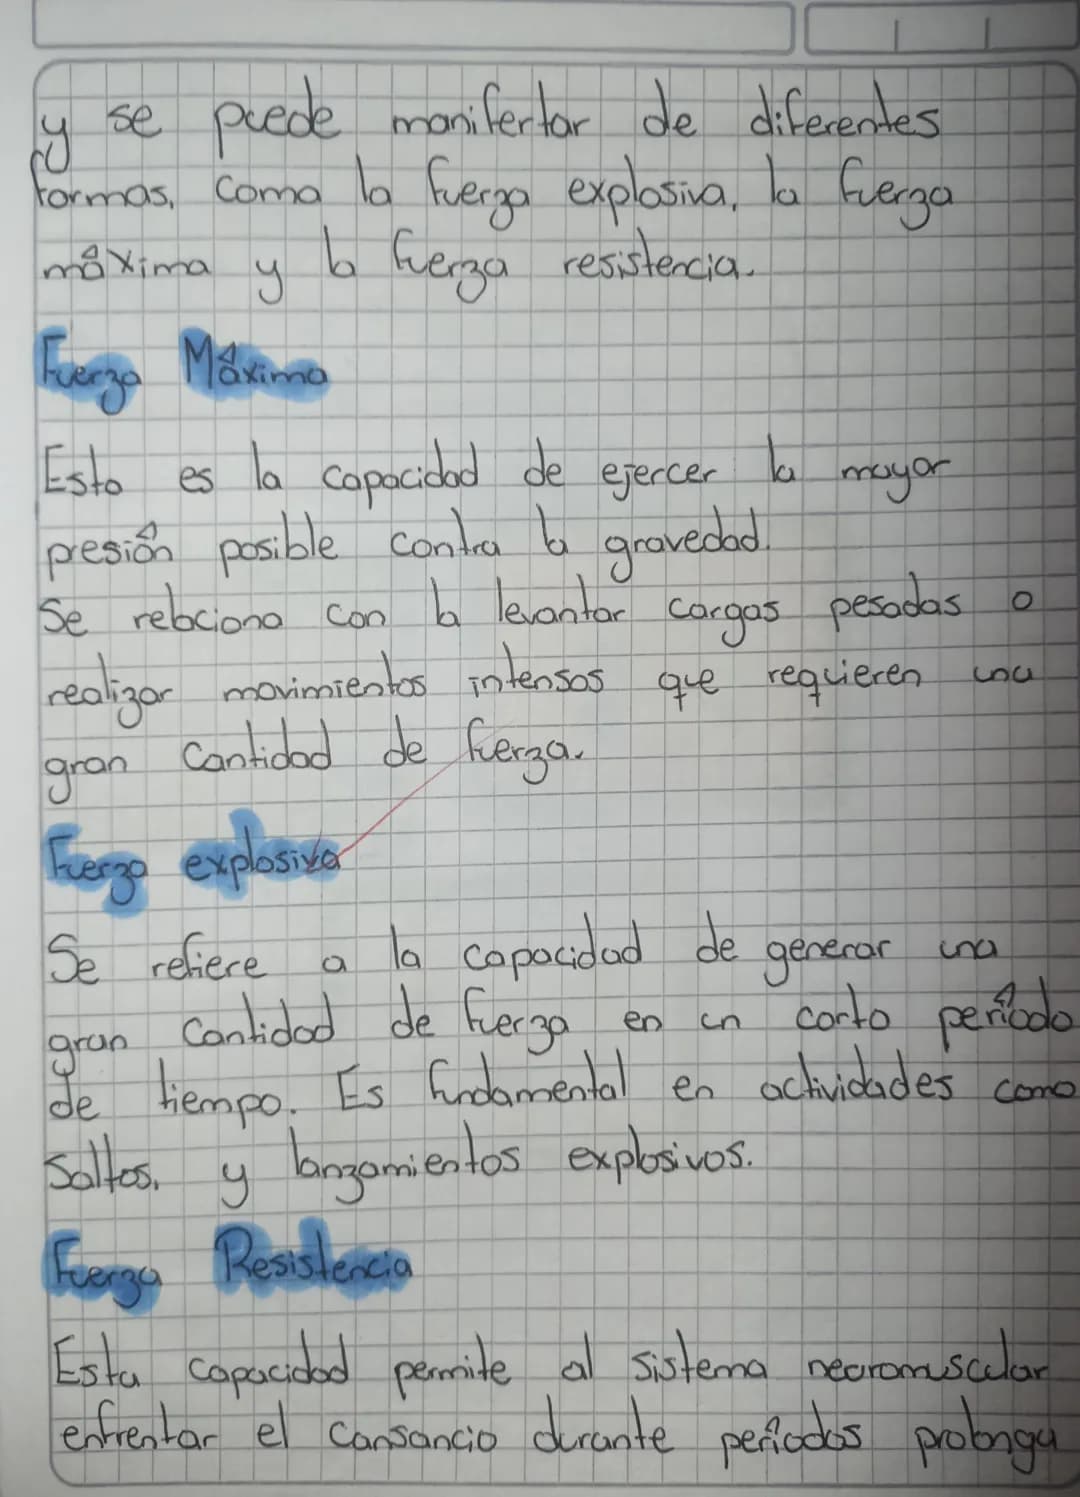 y se puede manifertar de diferentes
formas, como la fuerza explosiva, la fuerza
máxima y la fuerza resistencia.
Fuerza Máxima
Esto es la capacidad de ejercer la mayor
presión posible contra la gravedad.
Se relaciona con la levantar cargas pesadas o
realizar movimientos intensos que requieren una
gran cantidad de fuerza.
Fuerza explosiva
Se refiere a la capacidad de generar una
gran cantidad de fuerza en un corto período
de tiempo. Es fundamental en actividades como
Saltos, y lanzamientos explosivos.
Fuerza Resistencia
Esta capacidad permite al sistema neuromuscular
enfrentar el cansancio durante períodos prolonga